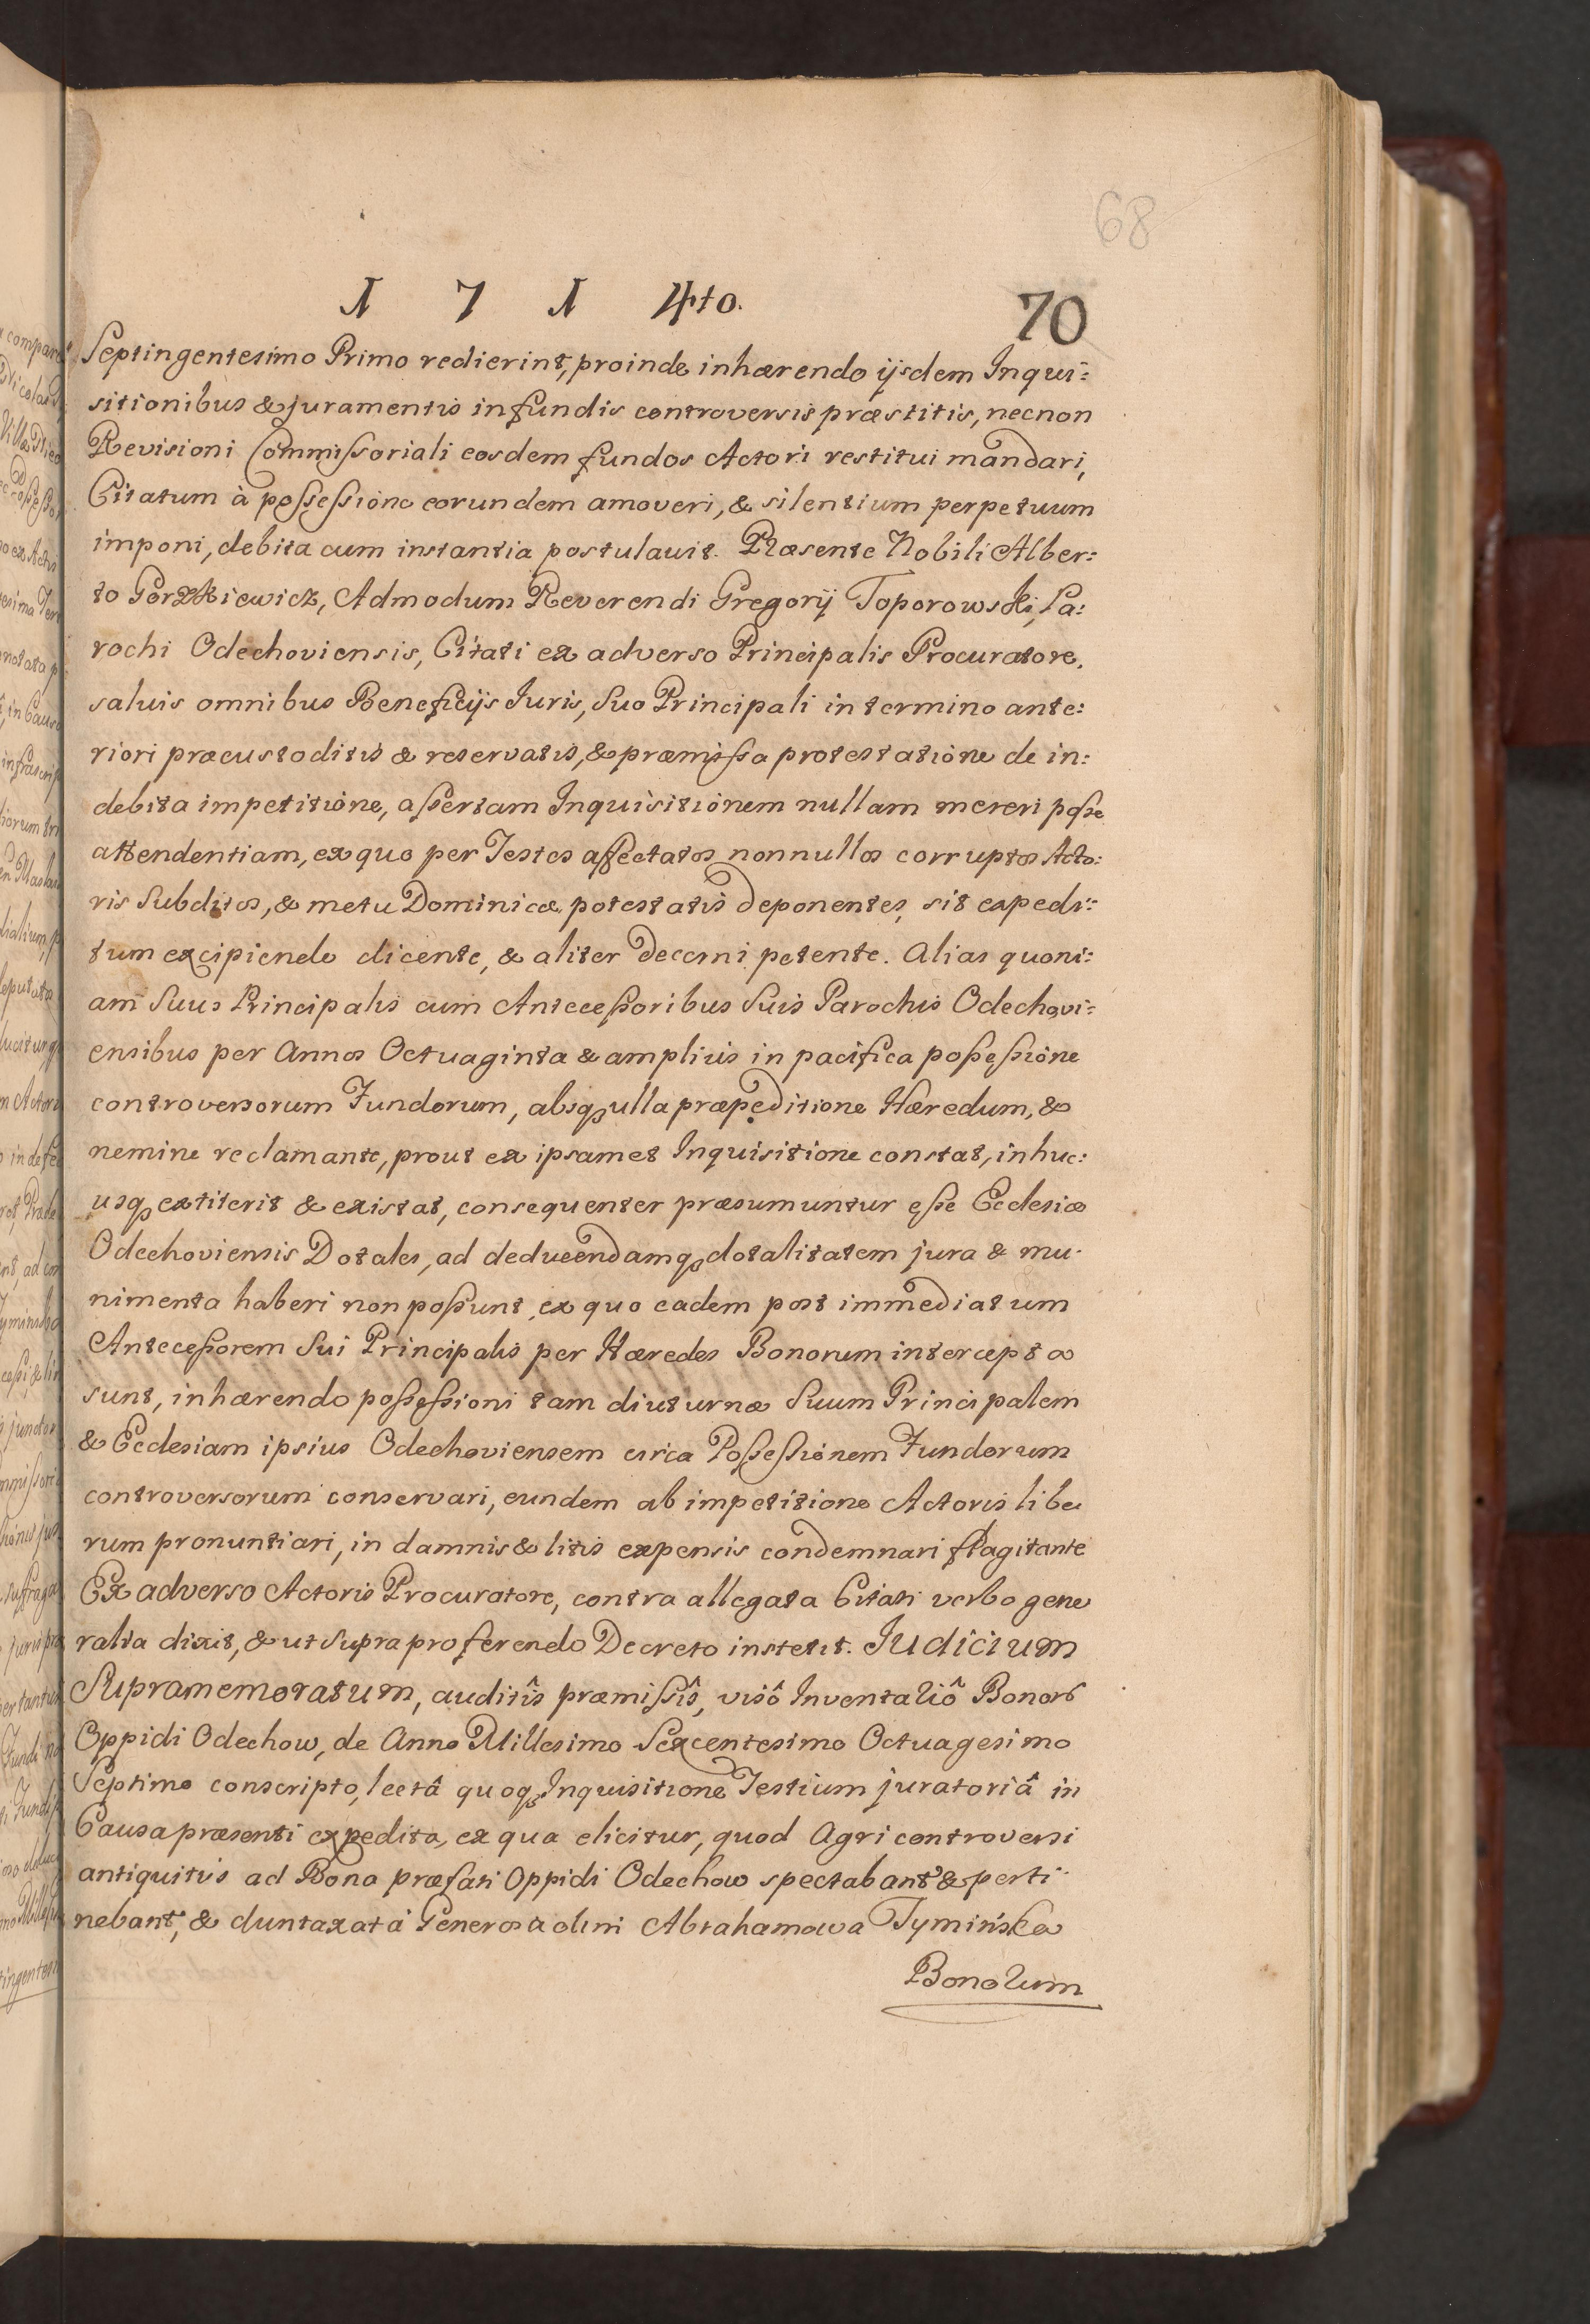 68
1 7 1 4to. 70
Septingentesimo Primo redierint, proinde inhærendo ijsdem Inqui:
sitionibus & juramentis in fundis controversis præstitis, necnon
Revisioni Commissoriali eosdem fundos Actori restitui mandari,
Citatum à possessione eorundem amoveri, & silentium perpetuum
imponi, debita cum instantia postulavit. Præsente Nobili Alber:
to Gorzkiewicz, Admodum Reverendi Gregorij Toporowski, Pa:
rochi Odechoviensis, Citati ex adverso Principalis Procuratore,
salvis omnibus Beneficijs Juris, Suo Principali in termino ante:
riori præcustoditis & reservatis, & præmissa protestatione de in:
debita impetitione, assertam Inquisitionem nullam mereri posse
attendentiam, ex quo per Testes affectatos nonnullos corruptos Acto:
ris Subditos, & metu Dominicæ potestatis deponentes, sit expedi:
tum excipiendo dicente, & aliter decerni petente. Alias quoni:
am Suus Principalis cum Antecessoribus Suis Parochis Odechovi:
ensibus per Annos Octuaginta & amplius in pacifica possessione
controversorum Fundorum, absq ulla præpeditione Hæredum, &
nemine reclamante, prout ex ipsamet Inquisitione constat, inhuc:
usq extiterit & existat, consequenter præsumuntur esse Ecclesiæ
Odechoviensis Dotales, ad deducendamq dotalitatem jura & mu:
nimenta haberi non possunt, ex quo eadem post immediatum
Antecessorem Sui Principalis per Hæredes Bonorum intercepta
sunt, inhærendo possessioni tam diuturnæ Suum Principalem
& Ecclesiam ipsius Odechoviensem circa Possessionem Fundorum
controversorum conservari, eundem ab impetitione Actoris libe
rum pronuntiari, in damnis & litis expensis condemnari flagitante
Ex adverso Actoris Procuratore, contra allegata Citati verbo gene
ralia dixit, & ut Supra proferendo Decreto institit. Judicium
Supramemoratum, auditîs præmissîs, visô Inventariô Bonor
Oppidi Odechow, de Anno Millesimo Sexcentesimo Octuagesimo
Septimo conscripto, lectâ quoq Inquisitione Testium juratoriâ in
Causa præsenti expedita, ex qua elicitur, quod Agri controversi
antiquitùs ad Bona præfati Oppidi Odechow spectabant & perti:
nebant, & duntaxat à Generosa olim Abrahamowa Tymińska
Bonorum